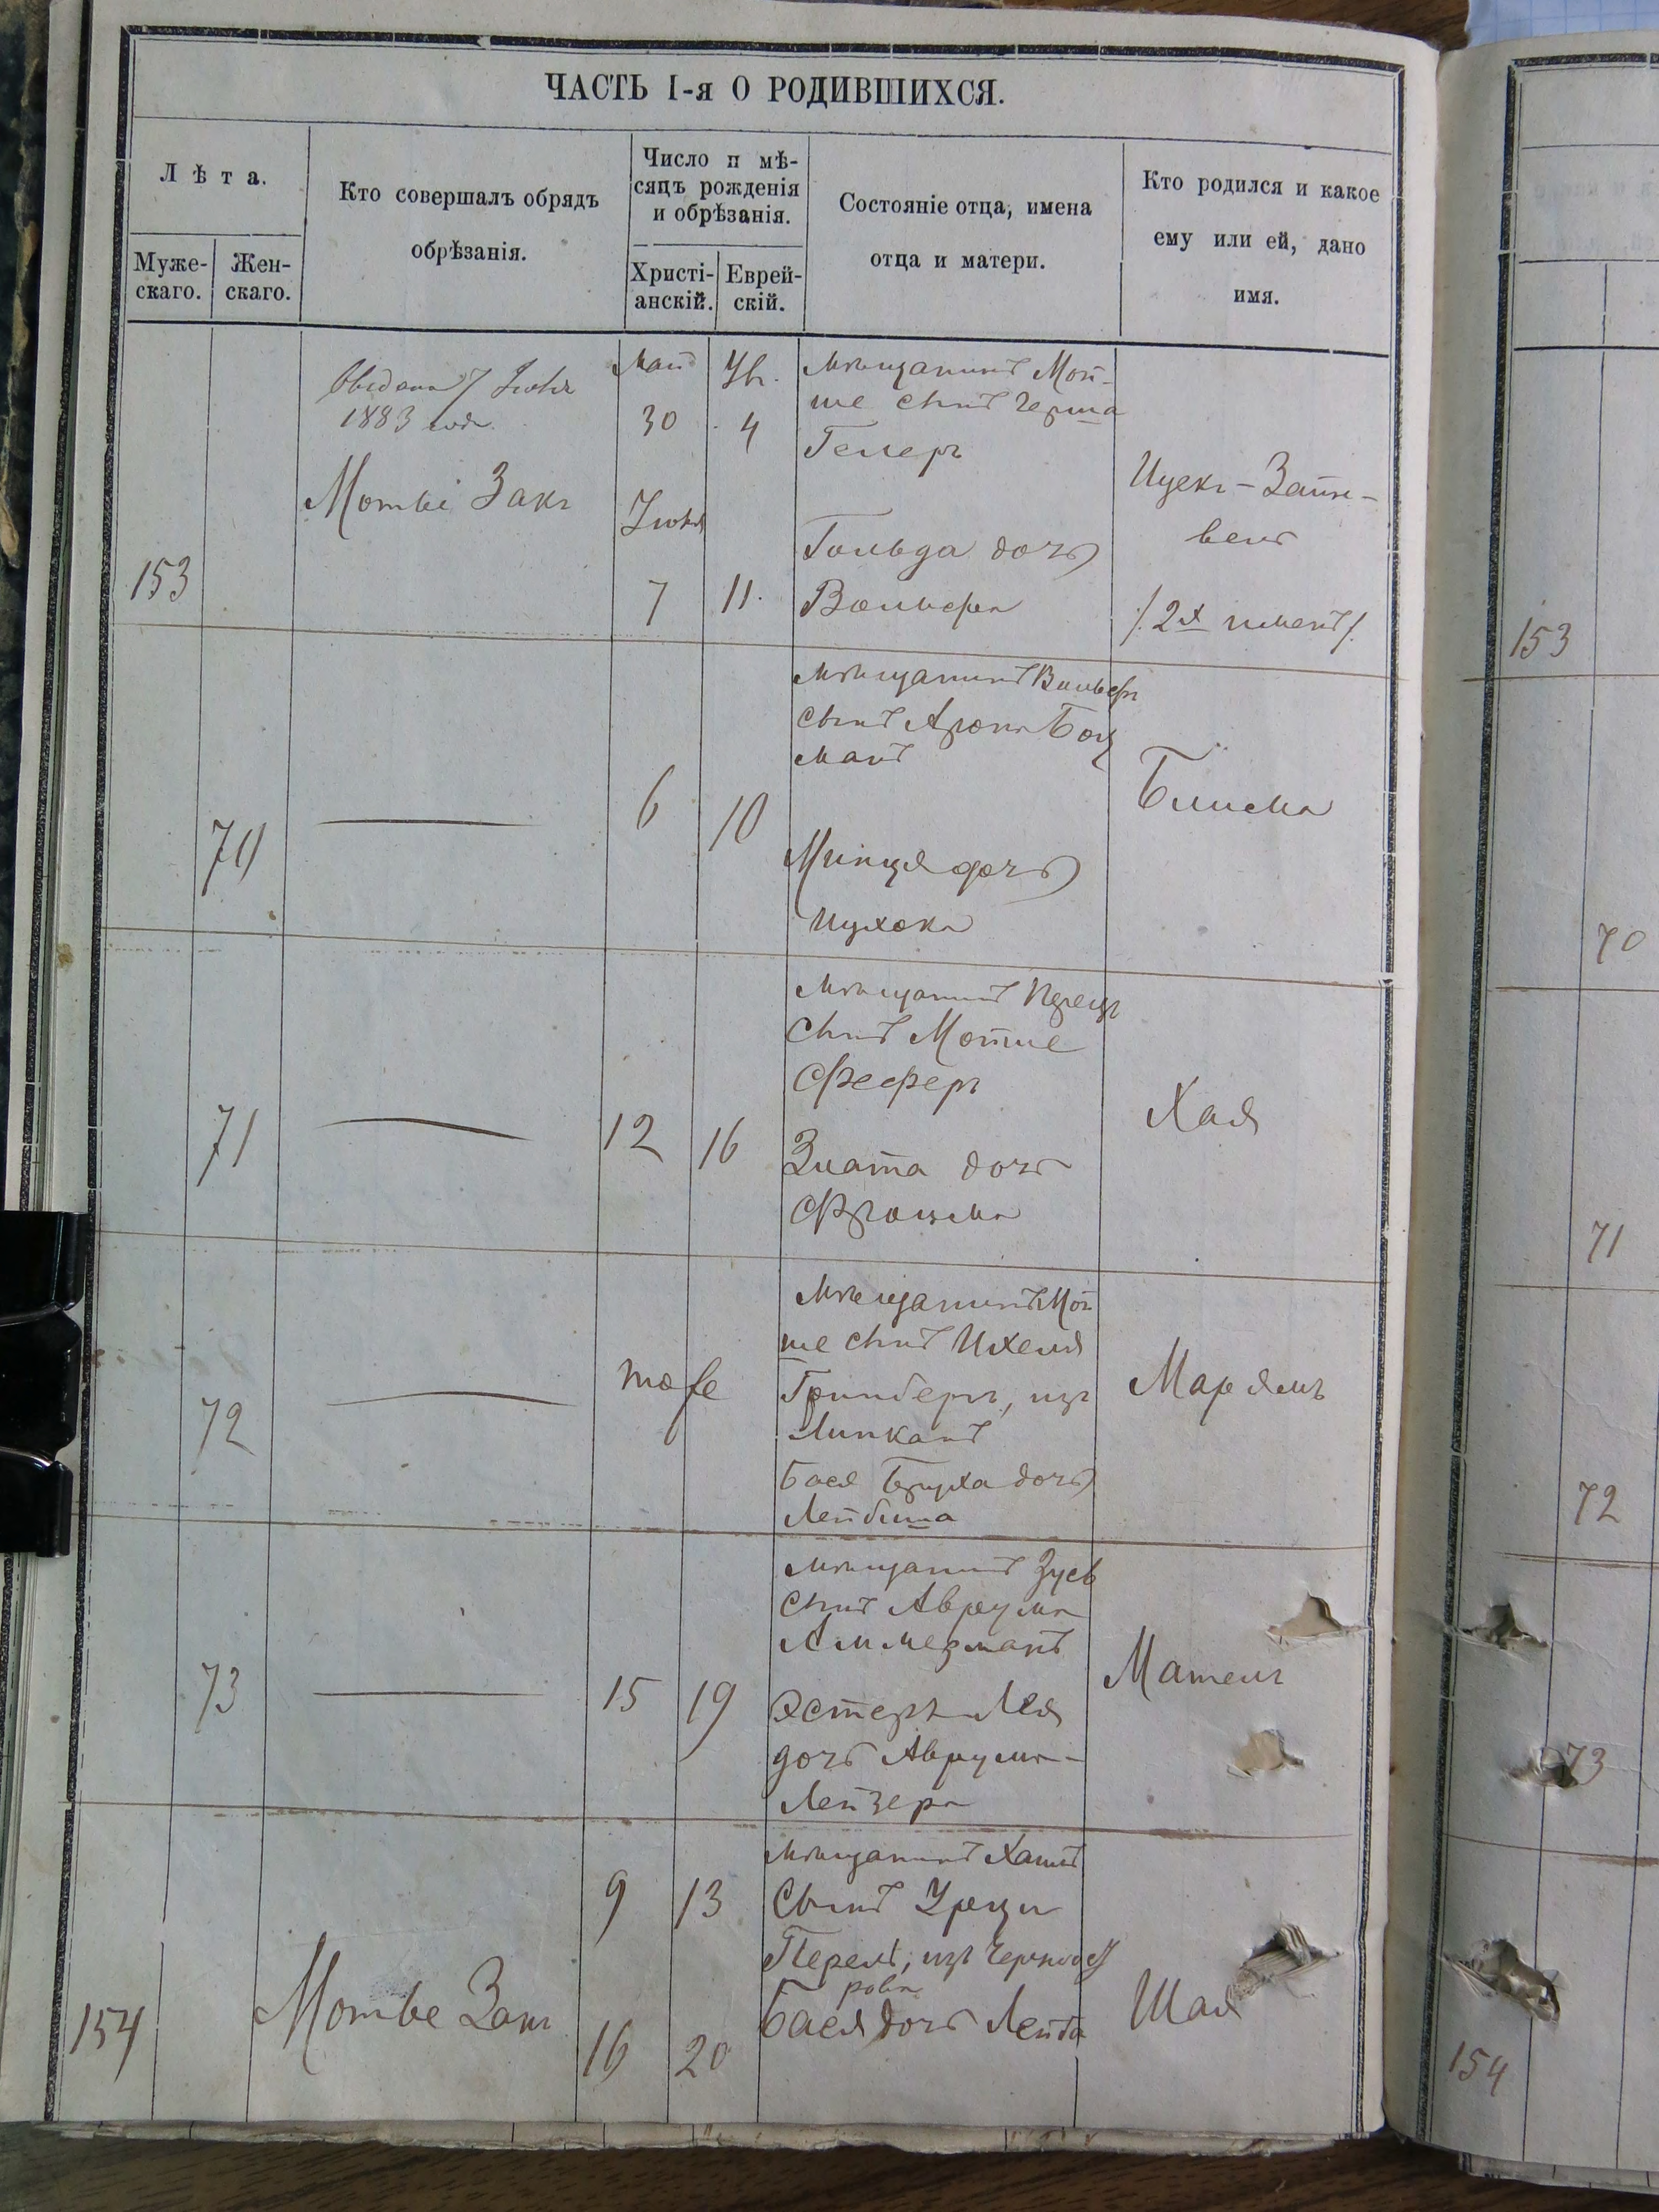 ЧАСТЬ I-я О РОДИВШИХСЯ.
Лѣта.
Муже-
скаго.
Жен-
скаго.
Кто совершалъ обрядъ
обрѣзанія.
Число и мѣ-
сяцъ рожденія
и обрѣзанія.
Христі-
анскій.
Еврей-
скій.
Состояніе отца, имена
отца и матери.
Кто родился и какое
ему или ей, дано
имя.
153
7 Іюня
1883 года
Мотье Закъ
Май
30
4
Іюня
7
11.
мѣщанинъ Мой-
ше сынъ Герша
Гелеръ
Гольда дочь
Вольфа
Ицекъ-Зайн-
велъ
/.2х именъ/.
70
6
10
мѣщанинъ Вольфъ
сынъ Арона
манъ
Минця дочь
Ицхока
Блима
71
12
16
мѣщанинъ Перецъ
сынъ Мотше
Феферъ
Злата дочь
Фроима
Хая
72
тоже
мѣщанинъ Мой
ше сынъ Ихеля
Гринбергъ, изъ
Липканъ
Бася Бруха дочь
Лейбиша
Марямъ
73
15
19
мѣщанинъ Зусь
сынъ Аврума
Аммерманъ
Эстеръ Лея
дочь Аврума-
Лейзера
Матель
154
Мотье Закъ
9
13
16
20
мѣщанинъ Хаимъ
сынъ
Перель, изъ
Бася дочь Лейба
Шая
153
70
71
72
73
154